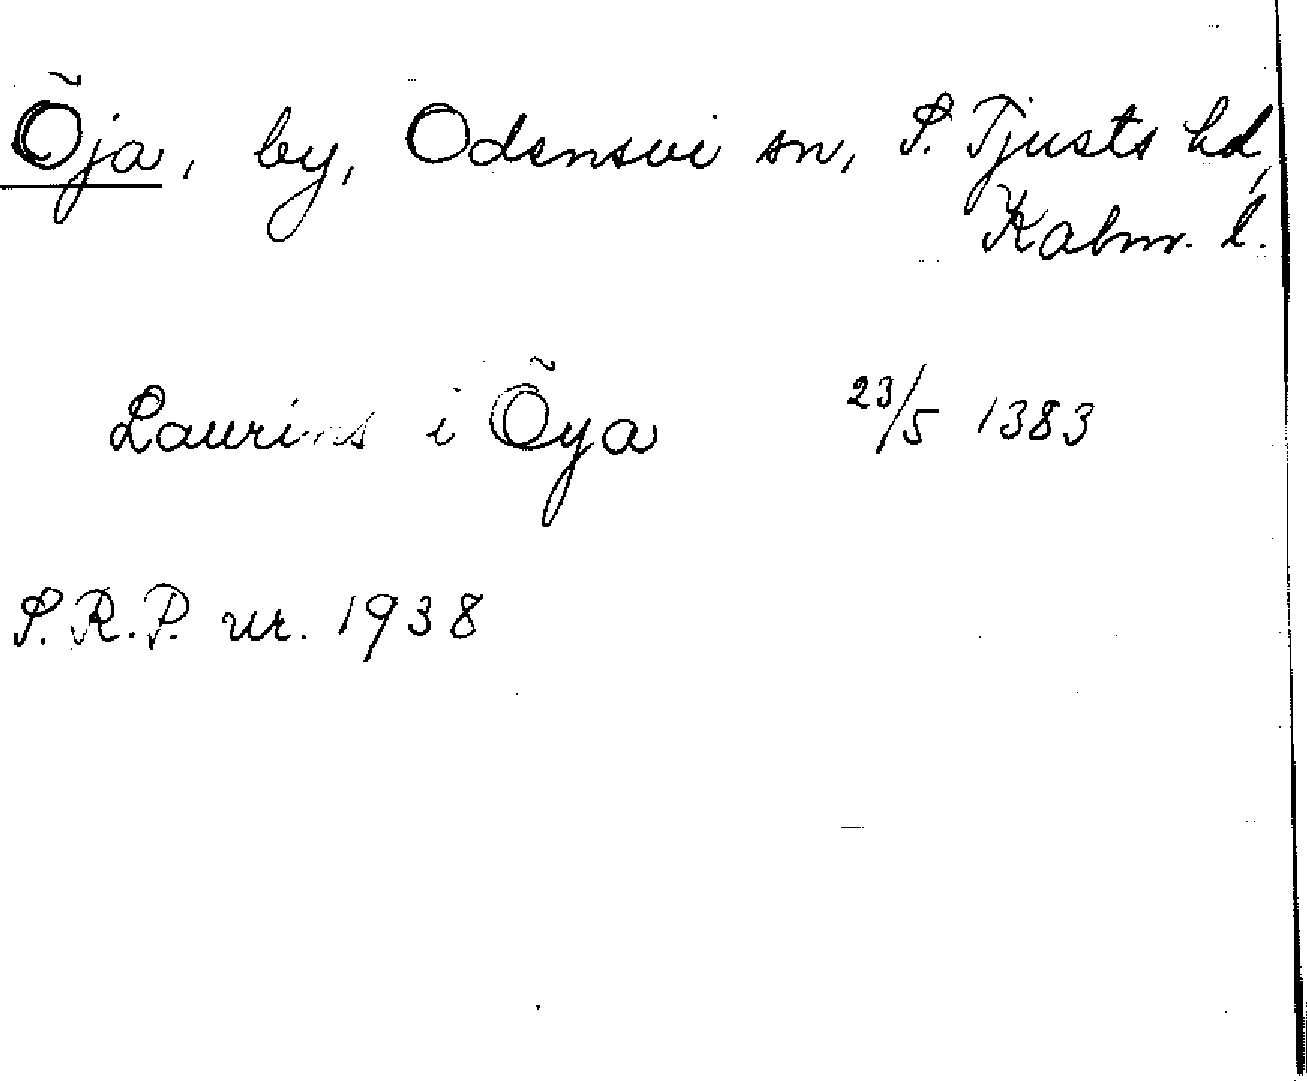 Õja, by, Odensvi sn, S. Tjusts hd,
Kalm. l.
Laurins i Õya 23/5 1383
S.R.P. nr. 1938